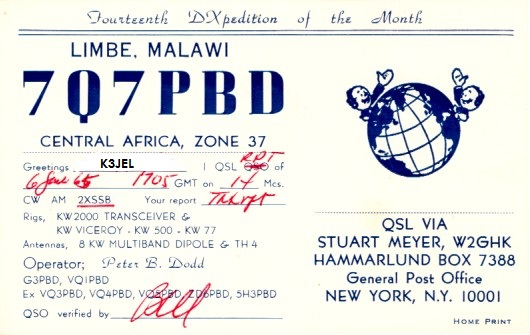 Fourteenth DXpedition of the Month
LIMBE, MALAWI
7Q7PBD
CENTRAL AFRICA, ZONE 37
Greetings K3JEL I QSL QSO RPT of
6 Jan 65 1705 GMT on 14 Mcs.
CW AM 2XSSB Your report Tnx rpt
Rigs, KW2000 TRANSCEIVER &
KW VICEROY - KW 500 - KW 77
Antennas, 8 KW MULTIBAND DIPOLE & TH 4
Operator; Peter B. Dodd
G3PBD, VQ1PBD
Ex VQ3PBD, VQ4PBD, VQ5PBD, ZD6PBD, 5H3PBD
QSO verified by
QSL VIA
STUART MEYER, W2GHK
HAMMARLUND BOX 7388
General Post Office
NEW YORK, N.Y. 10001
HOME PRINT